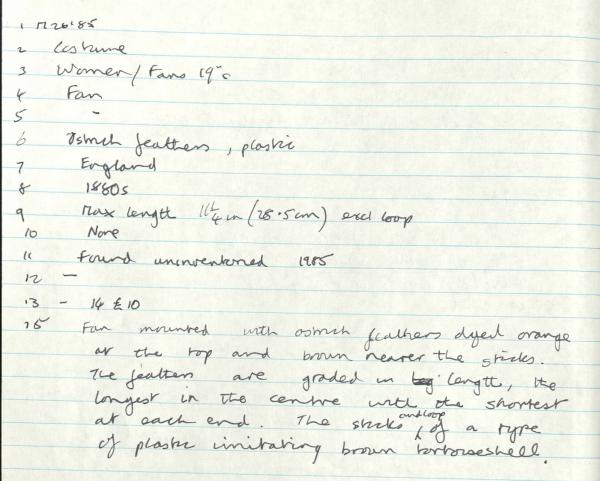 1 M26'85
2 Costume
3 Women/Fans 19th c
4 Fan
5 -
6 Ostrich feathers, plastic
7 England
8 1880s
9 Max length 11 1/4 in (28.5cm) excl loop
10 None
11 Found uninventoried 1985
12 -
13 - 14 £10
15 Fan mounted with ostrich feathers dyed orange
at the top and brown nearer the sticks.
The feathers are graded in length, the
longest in the centre with the shortest
at each end. The sticks and loop of a type
of plastic imitating brown tortoiseshell.